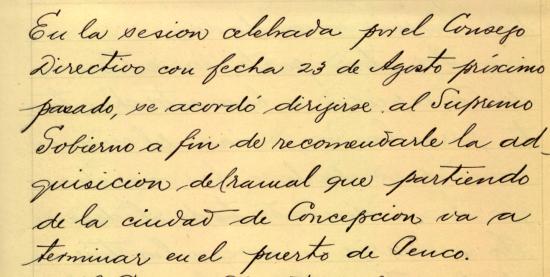 En la sesion celebrada por el Consejo
Directivo con fecha 23 de Agosto próximo
pasado, se acordó dirijirse al Supremo
Gobierno a fin de recomendarle la ad_
quisicion del ramal que partiendo
de la ciudad de Concepcion va a
terminar en el puerto de Penco.